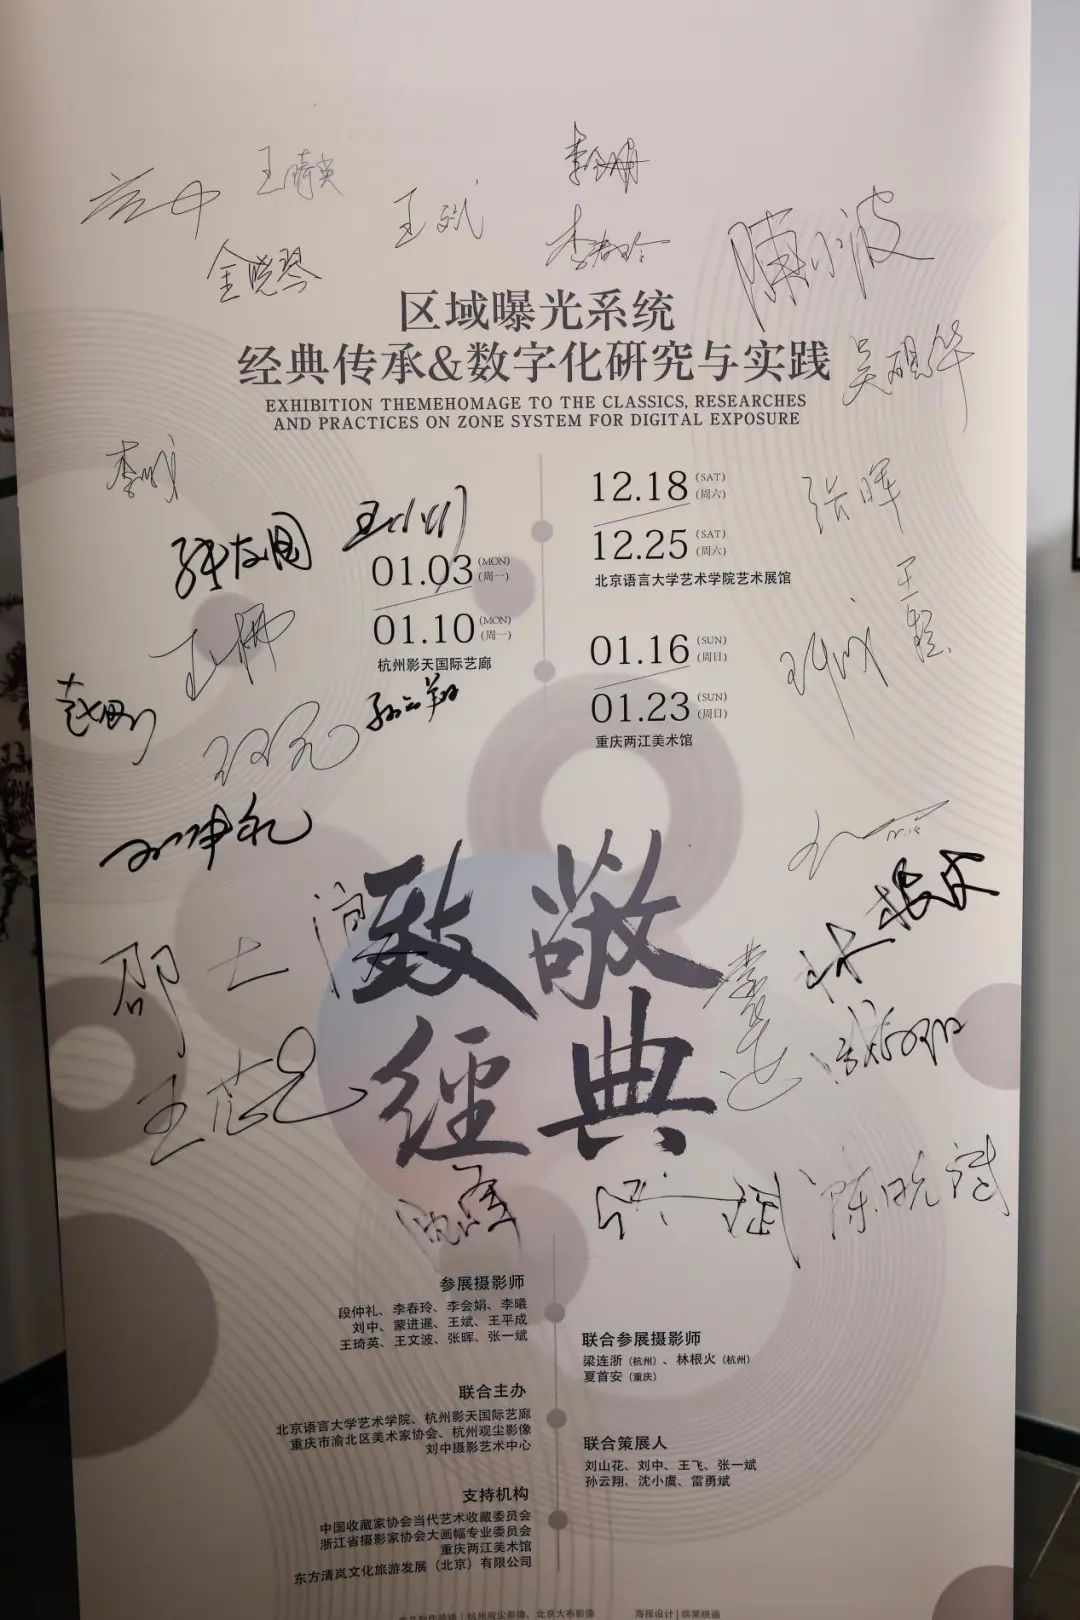 王琦英
王斌
李春玲
金晓琴
陈小波
区域曝光系统
经典传承&数字化研究与实践
EXHIBITION THEMEHOMAGE TO THE CLASSICS, RESEARCHES
AND PRACTICES ON ZONE SYSTEM FOR DIGITAL EXPOSURE
张晖
12.18 (SAT) (周六)
12.25 (SAT) (周六)
北京语言大学艺术学院艺术展馆
01.03 (MON) (周一)
01.10 (MON) (周一)
杭州影天国际艺廊
01.16 (SUN) (周日)
01.23 (SUN) (周日)
重庆两江美术馆
孙云翔
林根火
致敬
經典
陈晓斌
参展摄影师
段仲礼、李春玲、李会娟、李曦
刘中、蒙进暹、王斌、王平成
王琦英、王文波、张晖、张一斌
联合参展摄影师
梁连浙(杭州)、林根火(杭州)
夏首安(重庆)
联合主办
北京语言大学艺术学院、杭州影天国际艺廊
重庆市渝北区美术家协会、杭州观尘影像
刘中摄影艺术中心
联合策展人
刘山花、刘中、王飞、张一斌
孙云翔、沈小虞、雷勇斌
支持机构
中国收藏家协会当代艺术收藏委员会
浙江省摄影家协会大画幅专业委员会
重庆两江美术馆
东方清岚文化旅游发展(北京)有限公司
杭州观尘影像、北京大布影像
海报设计|缤果映画